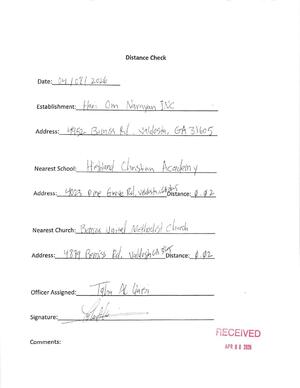 Distance Check
Date: 04/08/2026
Establishment: Hari Om Narayan INC
Address: Bemiss Rd. Valdosta, GA 31605
Nearest School: Highland Christian Academy
Address: 4023 Pine Grove Rd. Valdosta Distance: 0.02
Nearest Church: Bemiss United Methodist Church
Address: 4879 Bemiss Rd. Valdosta GA Distance: 0.02
Officer Assigned:
Signature:
RECEIVED
APR 2026
Comments: